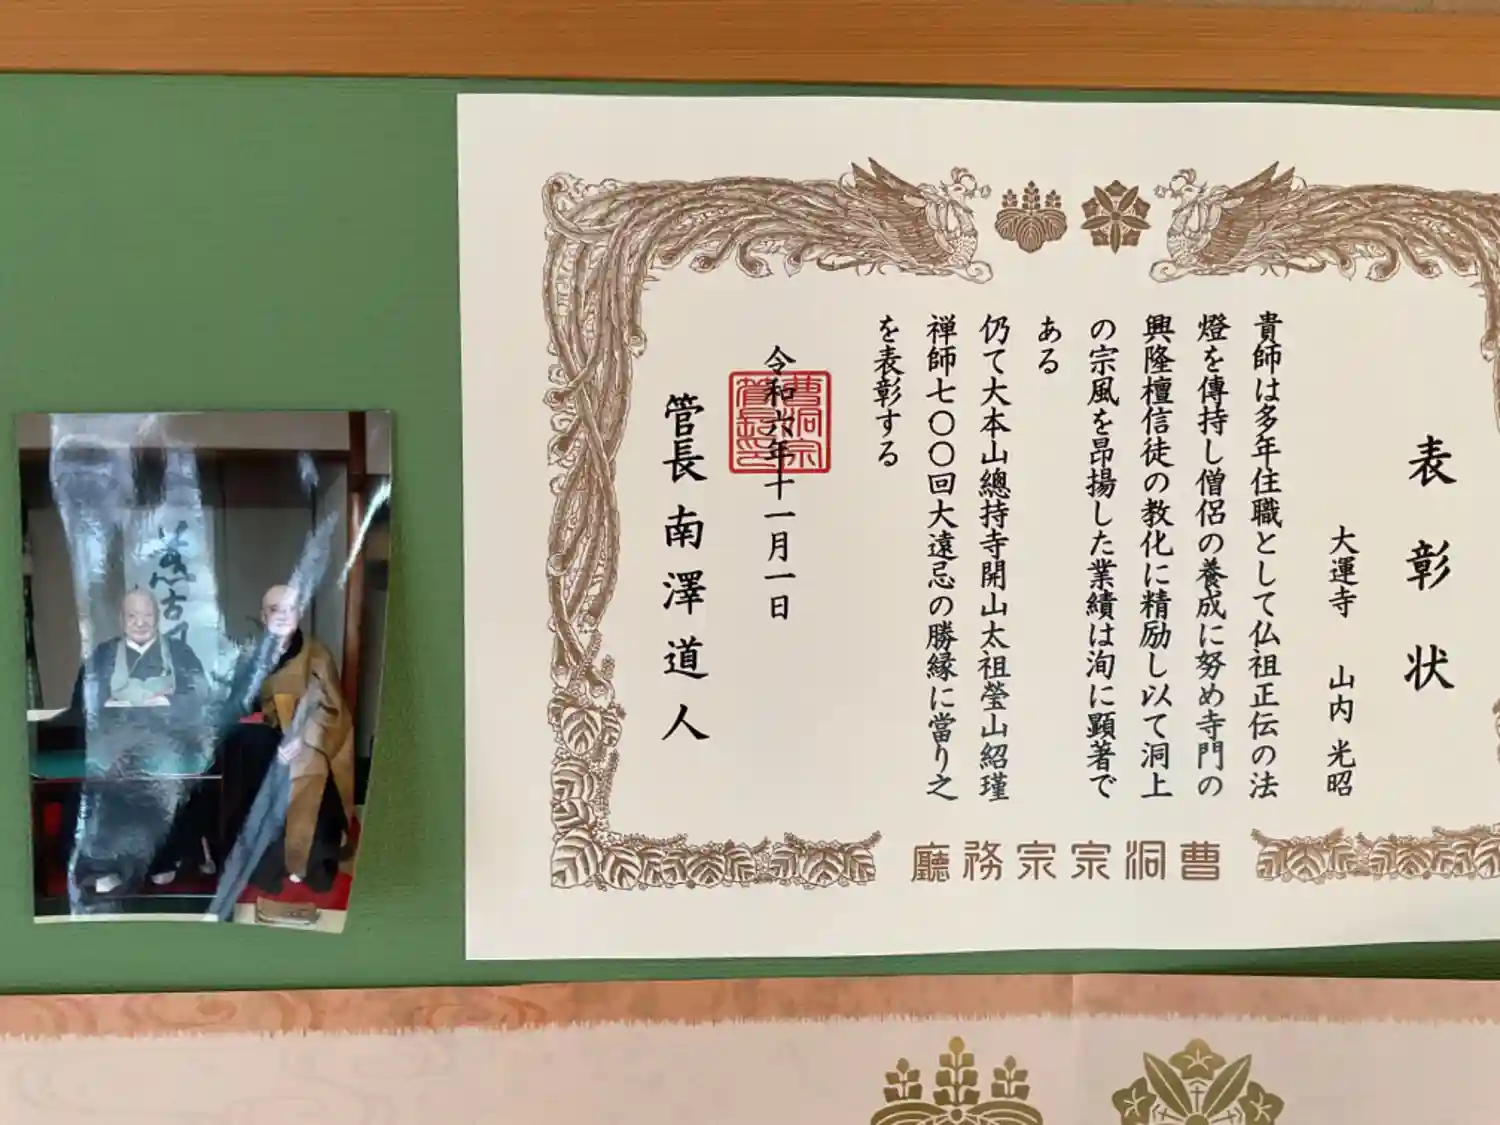 表彰状
大運寺 山内光昭
貴師は多年住職として仏祖正伝の法
燈を傳持し僧侶の養成に努め寺門の
興隆檀信徒の教化に精励し以て洞上
の宗風を昂揚した業績は洵に顕著で
ある
仍て大本山總持寺開山太祖瑩山紹瑾
禅師七〇〇回大遠忌の勝縁に當り之
を表彰する
令和六年十一月一日
管長南澤道人
曹洞宗管長之印
曹洞宗宗務廳